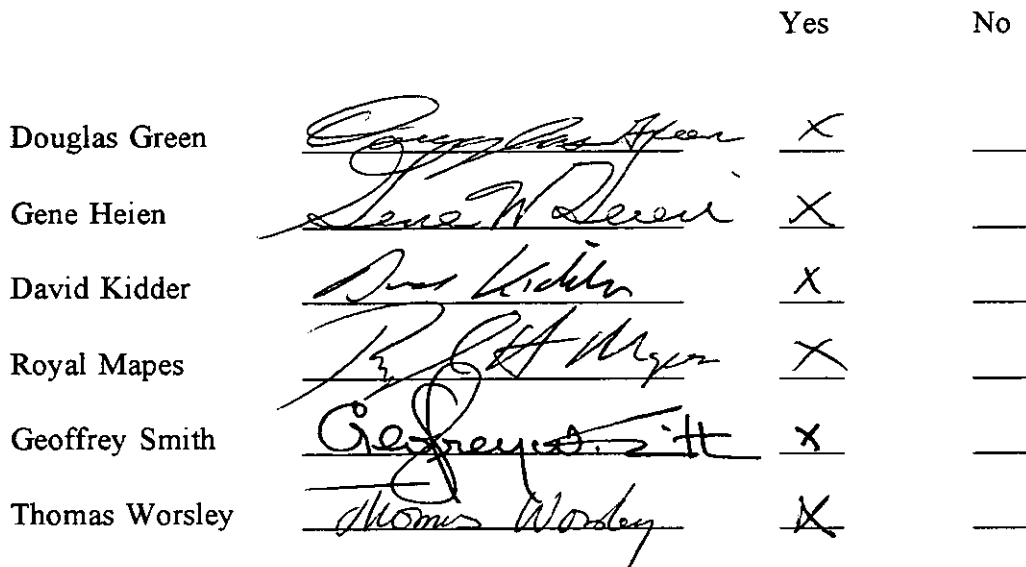 Yes No
Douglas Green Douglas Green X
Gene Heien Gene W Heien X
David Kidder David Kidder X
Royal Mapes Royal H Mapes X
Geoffrey Smith Geoffrey Smith X
Thomas Worsley Thomas Worsley X